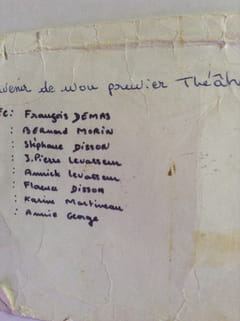 venir de mon premier Théât
ec: François DEMAS
: BERNARD MORIN
: Stéphane DISSON
: J.Pierre Levasseur
: Annick Levasseur
: Florence DISSON
: Karine Martineau
: Annie George